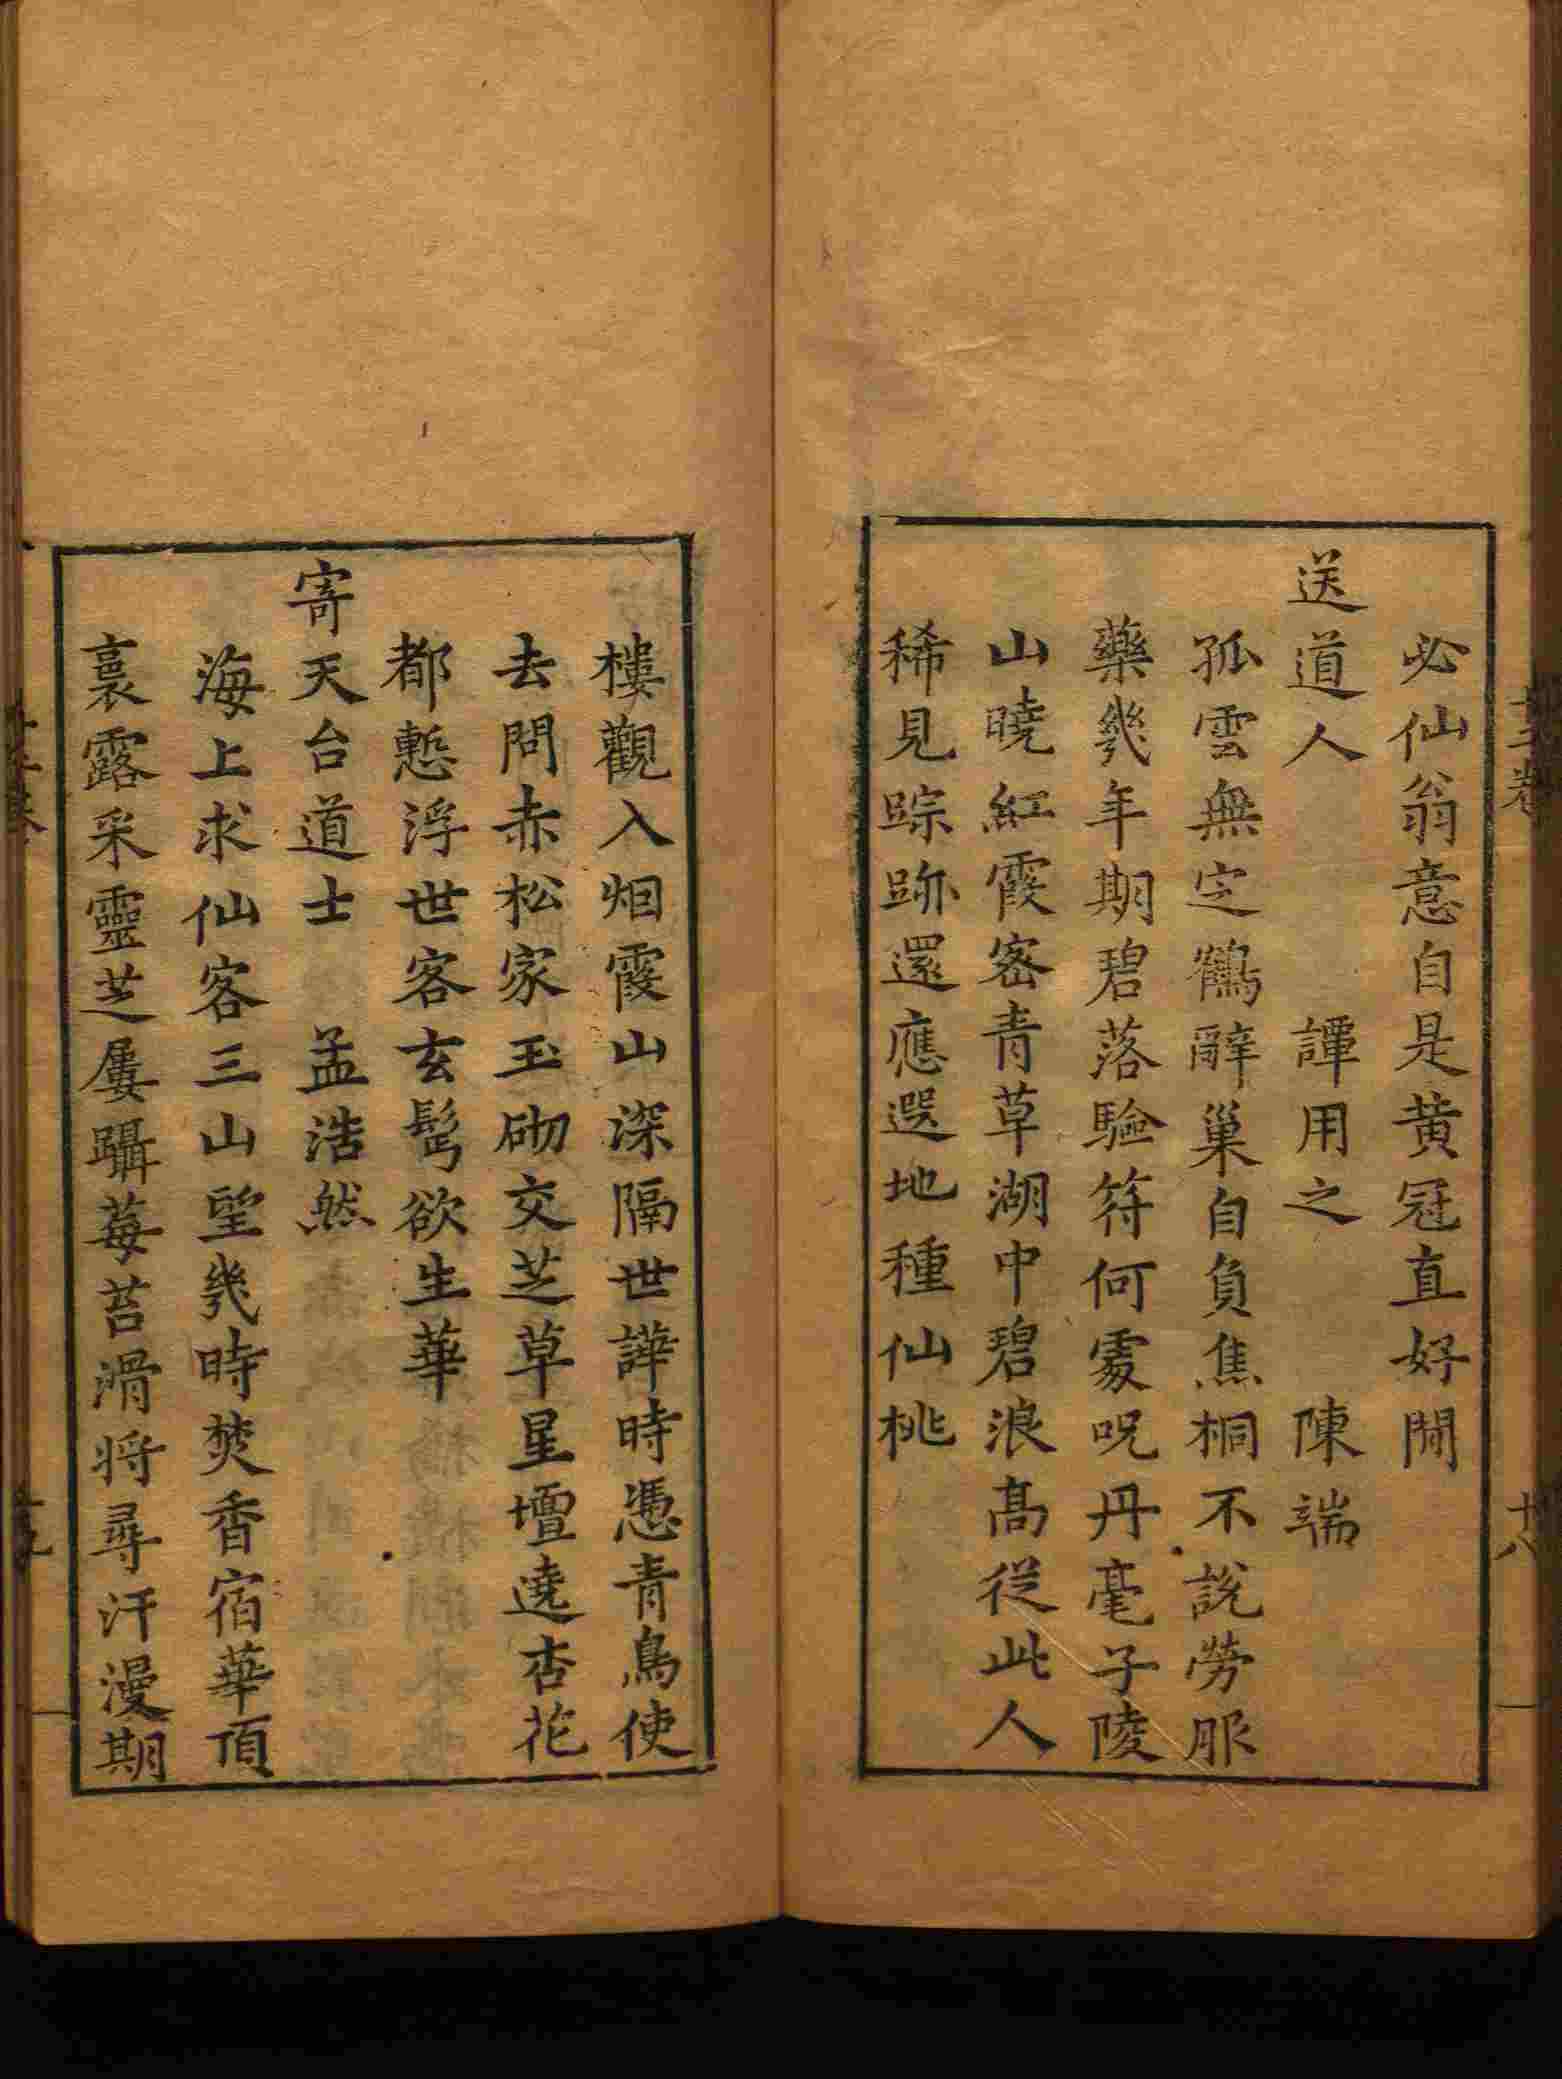 必仙翁意自是黄冠直好閒
送道人 譚用之 陳端
孤雲無定鶴辭巢自負焦桐不說勞服
藥幾年期碧落驗符何處呪丹毫子陵
山曉紅霞密青草湖中碧浪髙従此人
稀見踪跡還應選地種仙桃
樓觀入烟霞山深隔世譁時憑青鳥使
去問赤松家玉砌交芝草星壇遶杏花
都慙浮世客玄髩欲生華
寄天台道士 孟浩然
海上求仙客三山望幾時焚香宿華頂
裛露采靈芝屢躡莓苔滑将尋汗漫期
十八